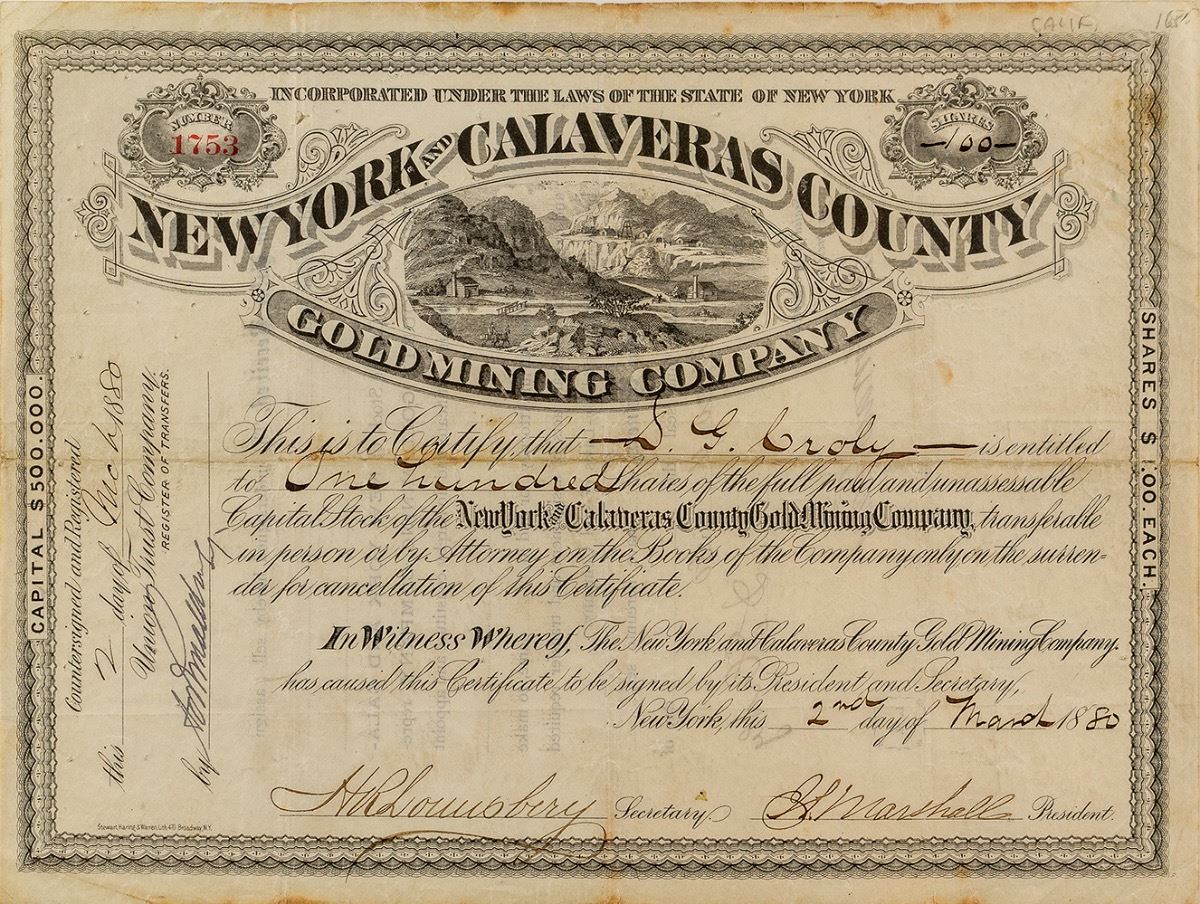 CALIF.
INCORPORATED UNDER THE LAWS OF THE STATE OF NEW YORK
NUMBER
1753
SHARES
—100—
NEW YORK AND CALAVERAS COUNTY
GOLD MINING COMPANY
CAPITAL $500.000.
SHARES $1.00. EACH.
Countersigned and Registered
this 2 day of 1880
Union Trust Company,
REGISTER OF TRANSFERS.
by
This is to Certify, that — D. G. Croly — is entitled
to One hundred Shares of the full paid and unassessable
Capital Stock of the New York and Calaveras County Gold Mining Company, transferable
in person or by Attorney on the Books of the Company only on the surren-
der for cancellation of this Certificate.
In Witness Whereof, The New York and Calaveras County Gold Mining Company.
has caused this Certificate to be signed by its President and Secretary,
New York, this 2nd day of March 1880
H R Lounsbery Secretary. Marshall President.
Stewart, Haring & Warren, Lith. 470 Broadway, N.Y.